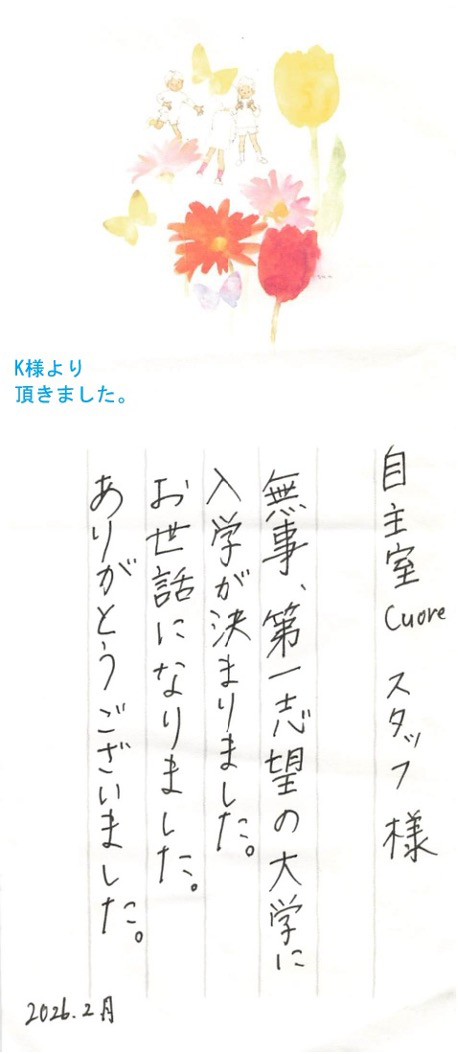 K様より
頂きました。
自主室 Cuore スタッフ 様
無事、第一志望の大学に
入学が決まりました。
お世話になりました。
ありがとうございました。
2026.2月